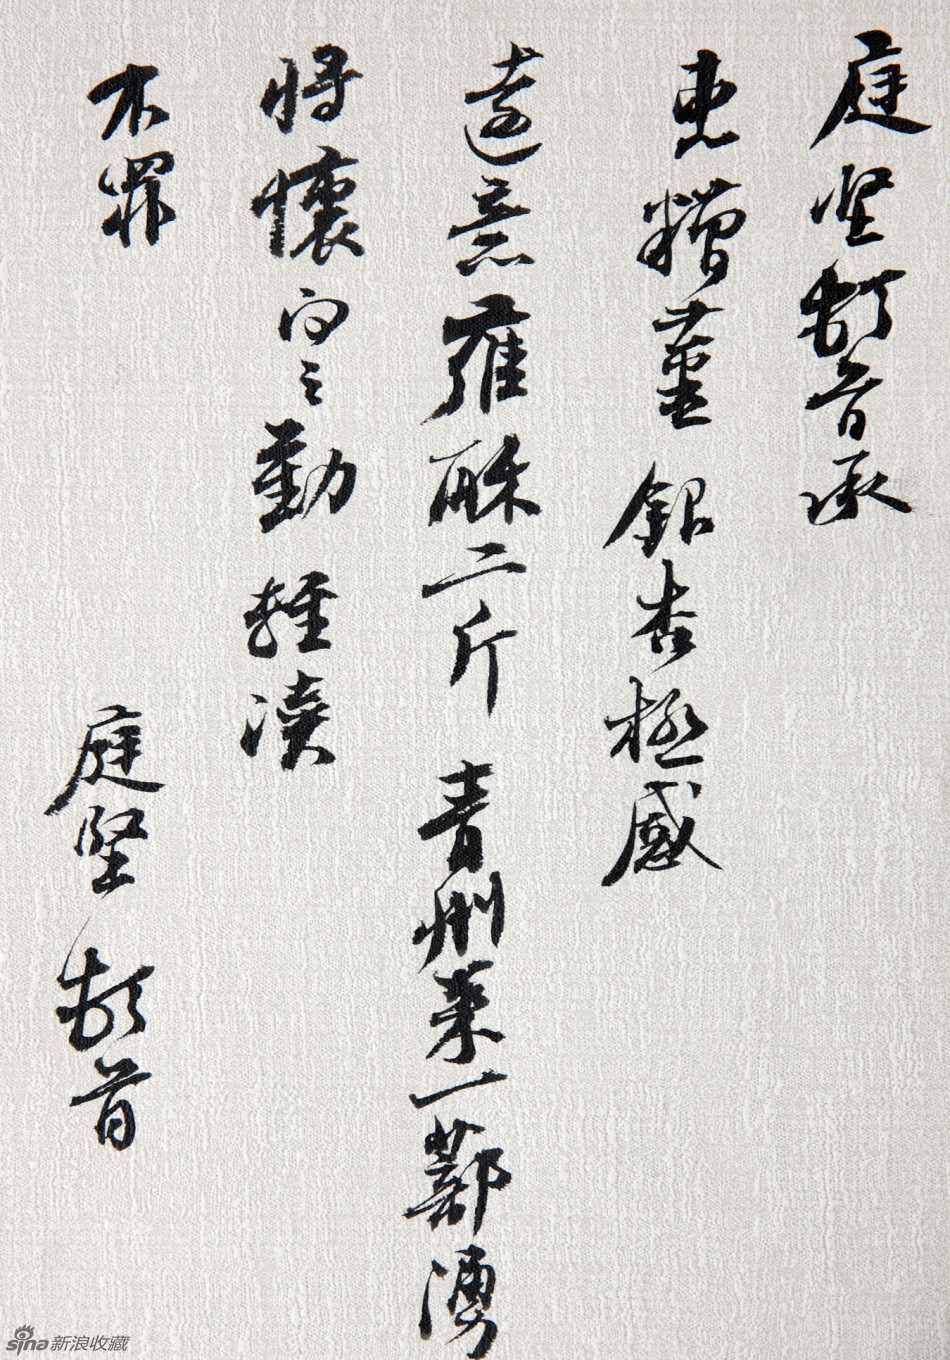 庭堅頓首承
惠糟薑銀杏極感
遠意雍酥二斤青州棗一蔀
將懷向之勤輕瀆
不罪
庭堅頓首
sina新浪收藏